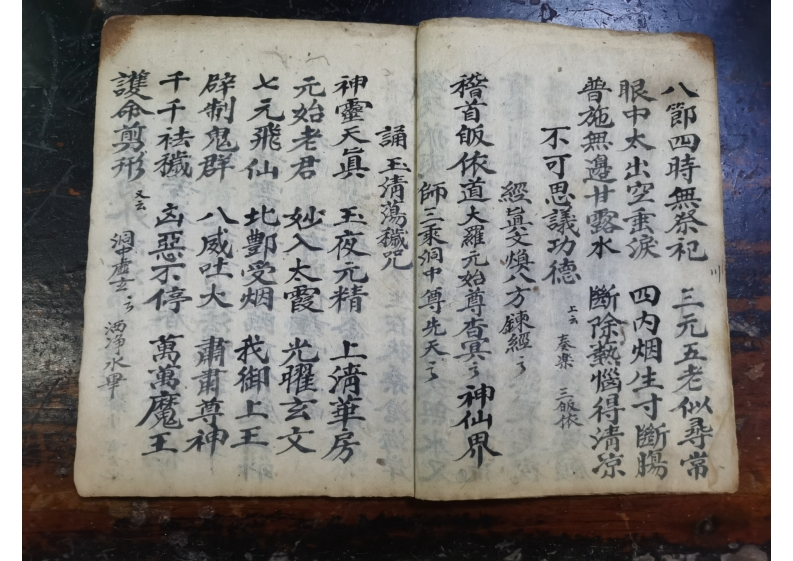 八節四時無祭祀 三元五老似尋常
眼中太出空垂淚 四內烟生寸斷腸
普施無邊甘露水 斷除熱惱得清涼
不可思議功德 上云 奏樂 三皈依
經眞文煥八方鍊經々
稽首皈依道大羅元始尊杳冥々神仙界
師三乘洞中尊先天々
誦玉清蕩穢咒
神靈天眞 玉夜元精 上清華房
元始老君 妙入太霞 光曜玄文
七元飛仙 北酆受烟 我御上王
辟制鬼群 八威吐大 肅肅尊神
千千祛穢 凶惡不停 萬萬魔王
護命剪形 又云 洞中虛玄々 洒净水畢